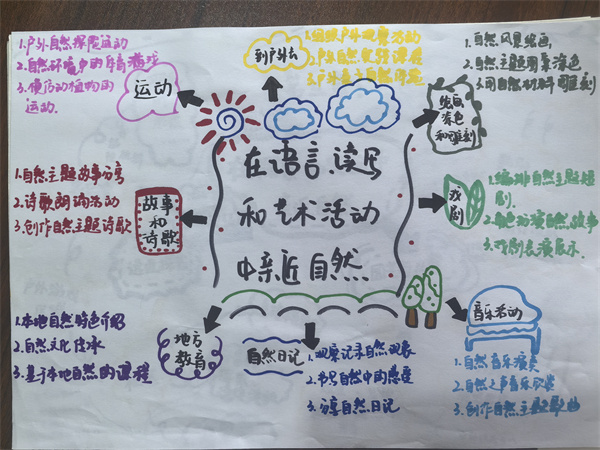 1.户外自然探险运动
2.自然环境中的体育游戏
3.模仿动植物的
运动.
运动
到户外去
1.组织户外观察活动
2.户外自然实践课程
3.户外自主自然游戏
1.自然风景绘画.
2.自然主题图案涂色
3.用自然材料雕刻
绘画
涂色
和雕刻
在语言、读写
和艺术活动
中亲近自然
1.自然主题故事分享
2.诗歌朗诵活动
3.创作自然主题诗歌
故事
和
诗歌
戏
剧
1.编排自然主题短
剧.
2.角色扮演自然故事
3.戏剧表演展示.
1.本地自然特色介绍
2.自然文化传承
3.基于本地自然的课程
地方
教育
自然日记
1.观察记录自然现象
2.书写自然中的感受
3.分享自然日记
音乐活动
1.自然音乐演奏
2.自然之声音乐欣赏
3.创作自然主题歌曲